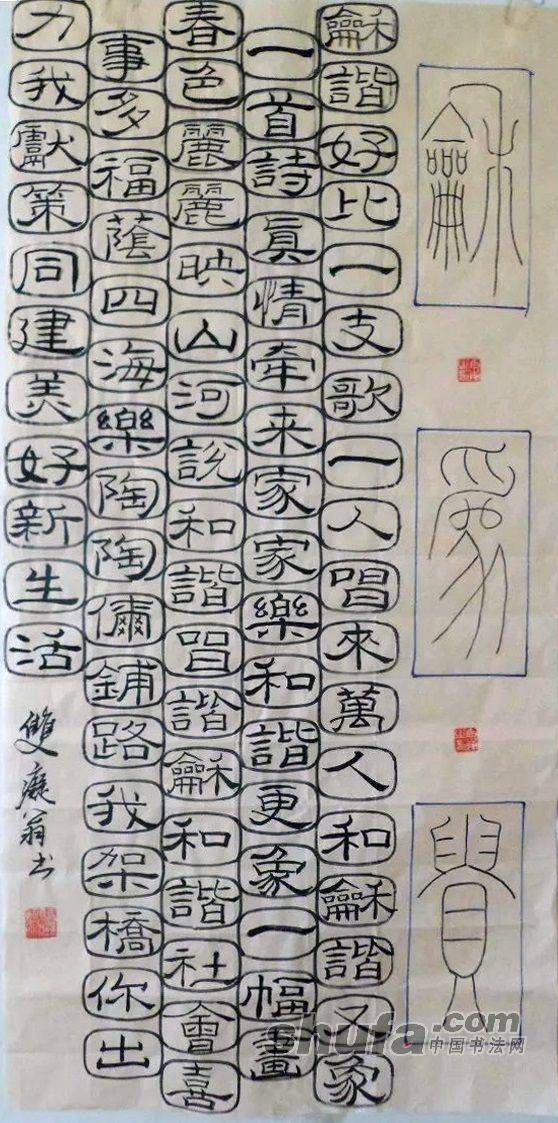 龢為貴
龢諧好比一支歌一人唱來萬人和龢諧又象
一首詩眞情牽来家家樂和諧更象一幅畫
春色麗麗映山河說和諧唱諧龢和諧社會喜
事多福蔭四海樂陶陶儞鋪路我架橋你出
力我獻策同建美好新生活
雙癡翁书
shufa.com
中国书法网